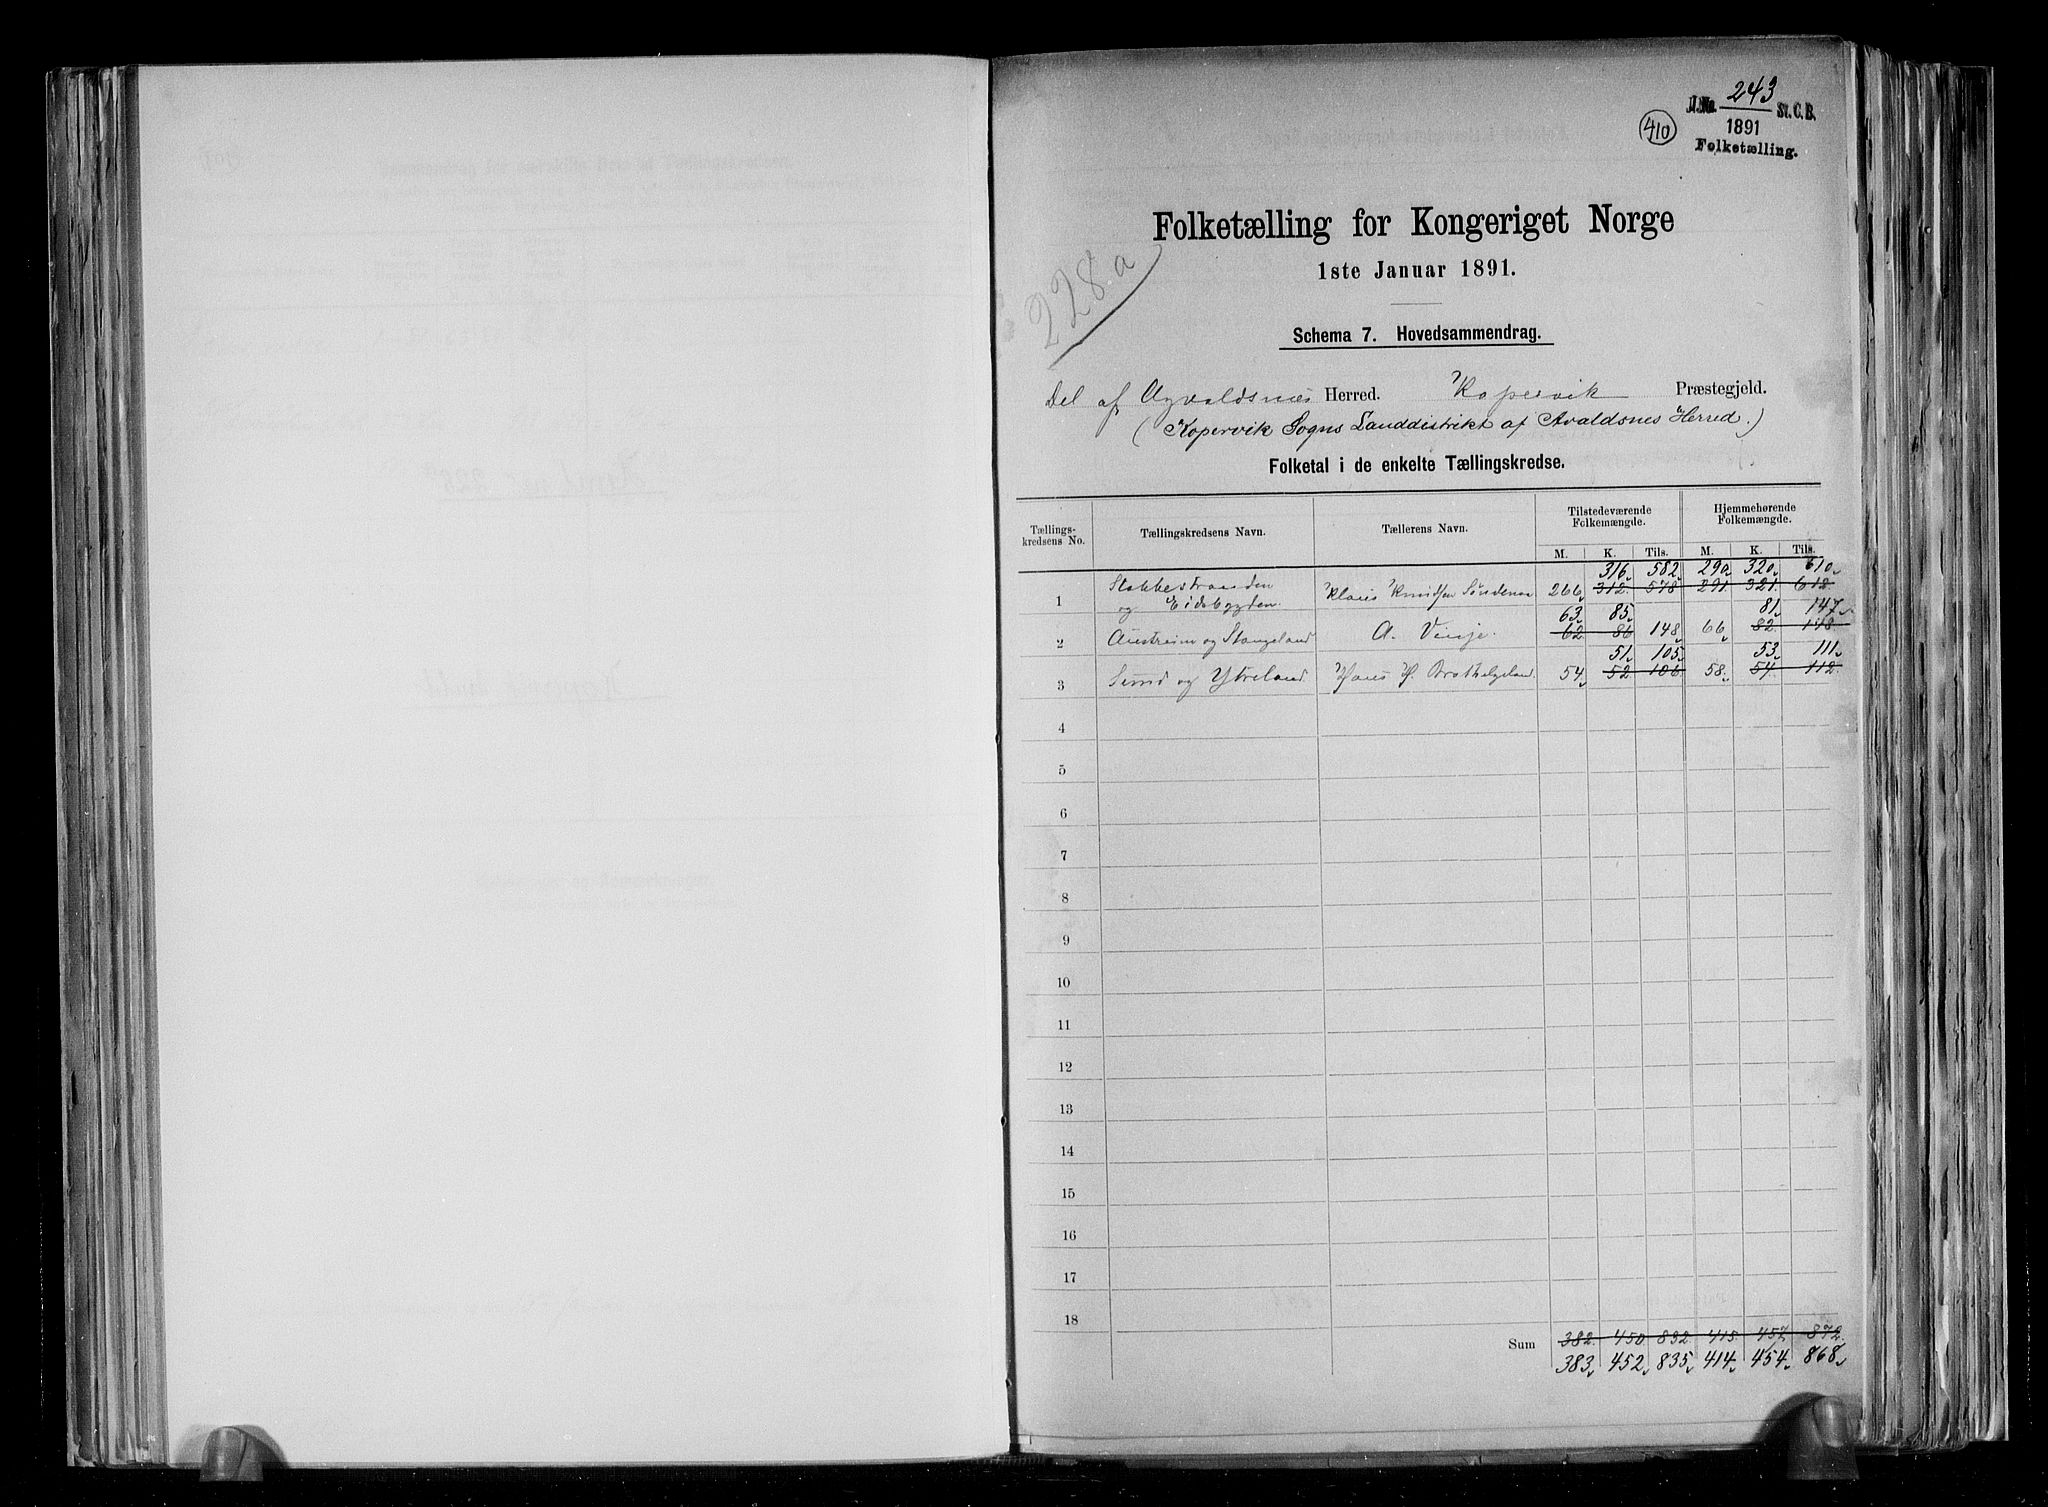 J.No. 243 St. C. B.
1891
Folketælling.
410
Folketælling for Kongeriget Norge
1ste Januar 1891.
228a
Schema 7. Hovedsammendrag.
Del af Agvaldsnæs Herred. Kopervik Præstegjeld.
(Kopervik Sogns Landdistrikt af Avaldsnes Herred.)
Folketal i de enkelte Tællingskredse.
Tællingskredsens No. Tællingskredsens Navn. Tællerens Navn. Tilstedeværende Folkemængde. Hjemmehørende Folkemængde.
M. K. Tils. M. K. Tils.
316 582 290 320 610
1 Stokkestranden og Eidsbygden. Klaus Knudsen 266 312 578 291 321 612
63 85 81 147
2 Austreim og Stangeland A. Vinje. 62 86 148 66 82 148
51 105 53 111
3 Sund og Ytreland Hans H. 54 52 106 58 54 112
4
5
6
7
8
9
10
11
12
13
14
15
16
17
18
Sum 382 450 832 415 457 872
383 452 835 414 454 868